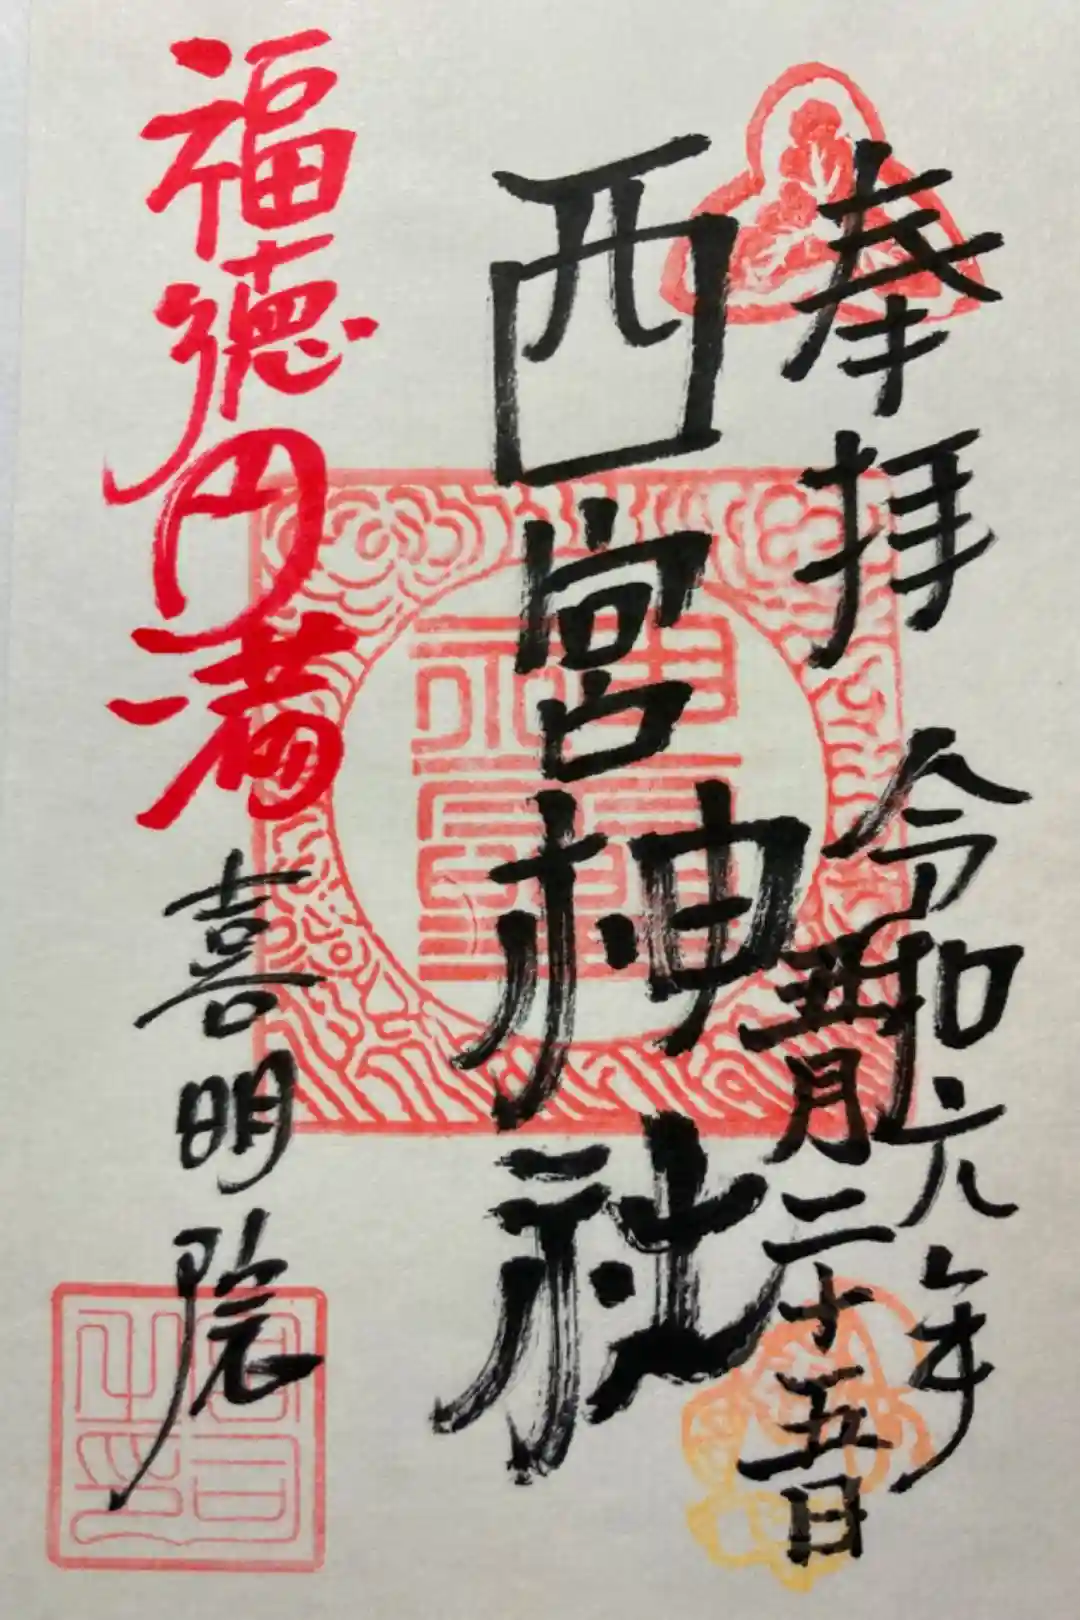 奉拝
令和元年
五月二十五日
西宮神社
福徳円満
喜明院